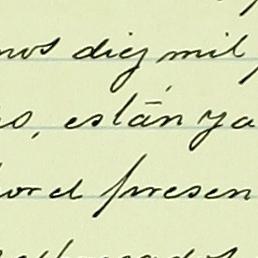 nos diez mil
s, están ya
por el presen